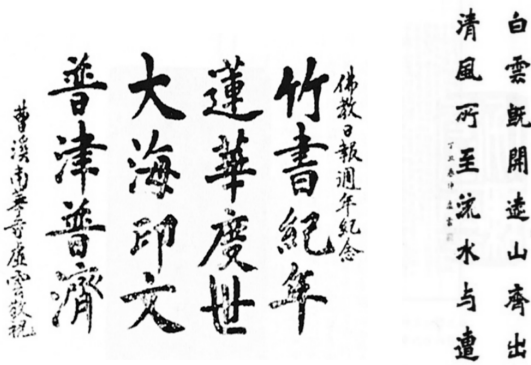 白雲既開遠山齊出
清風所至流水与遭
佛教日報週年紀念
竹書紀年
蓮華度世
大海印文
普津普濟
曹溪南華寺虛雲敬祝